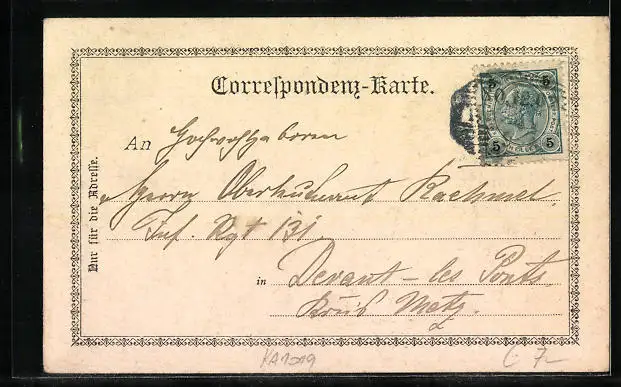 Correspondenz-Karte.
An Hochwohlgeboren
Herrn Oberleutnant Rachmel.
Inf. Rgt 131
in Devant-les Ponts
Kreis Metz.
Nur für die Adresse.
5 5
KA1019
7-